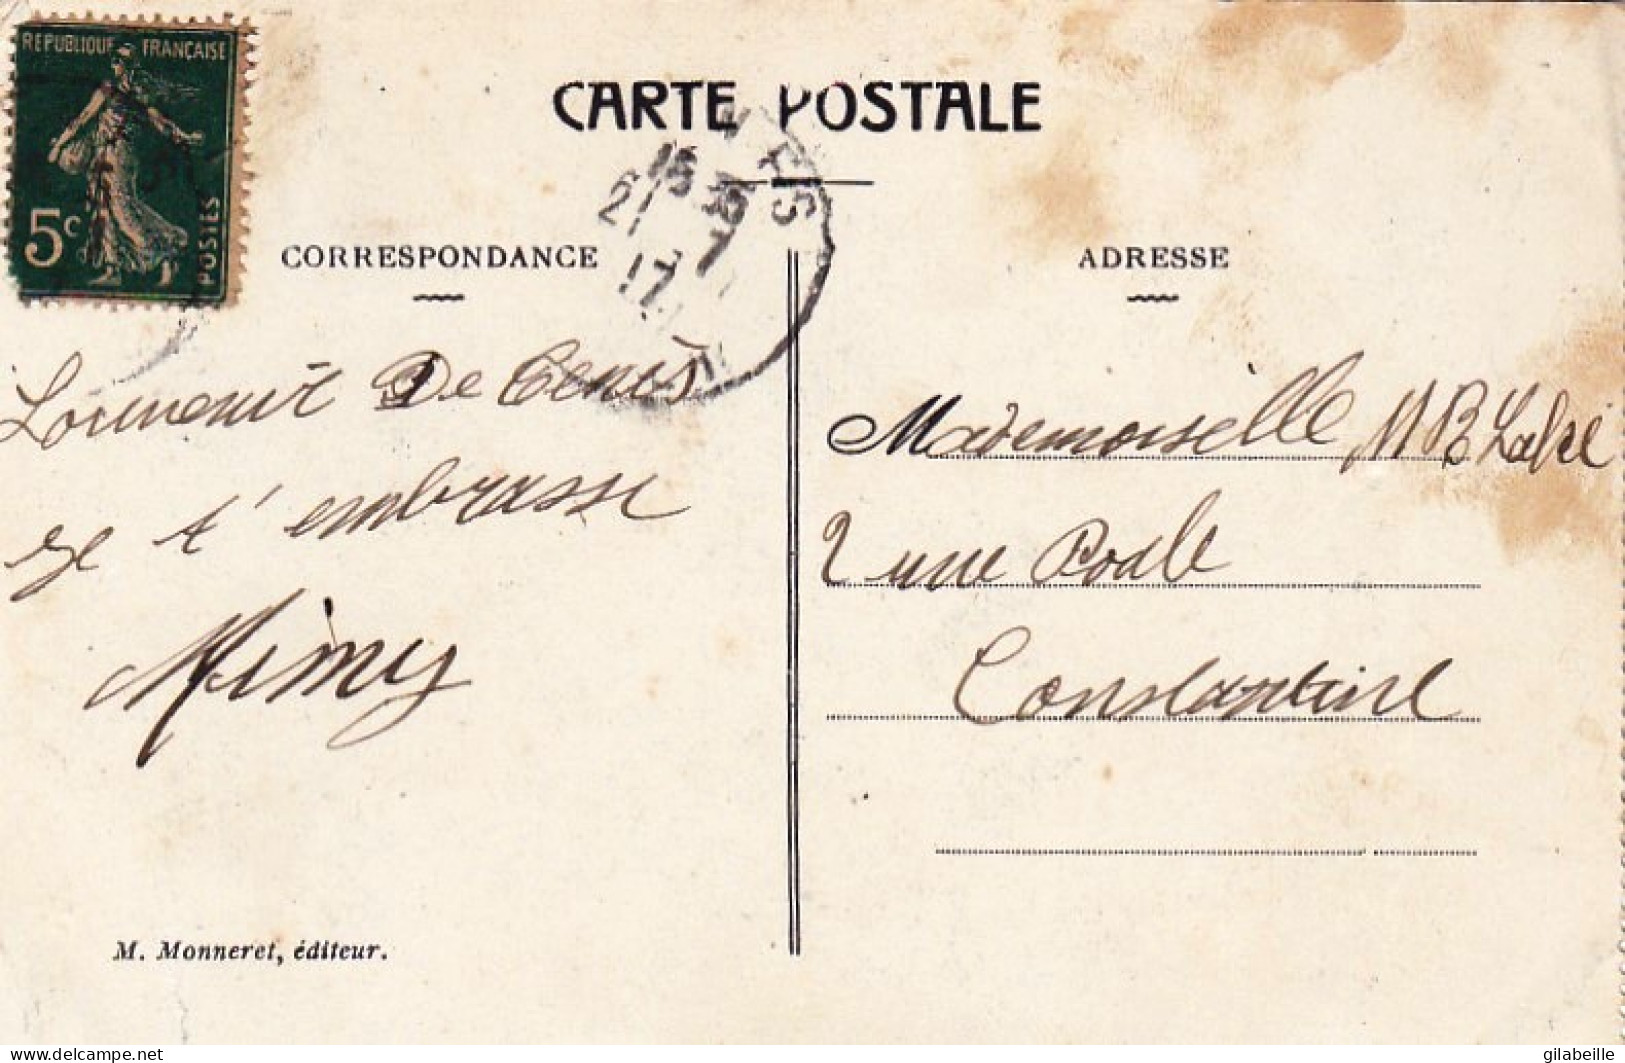 REPUBLIQUE FRANÇAISE
5c
POSTES
CARTE POSTALE
15 30
21 7
17
CORRESPONDANCE
ADRESSE
Souvenir De Tenes
Je t'embrasse
Mimy
Mademoiselle M B
2 rue
Constantine
M. Monneret, éditeur.
delcampe.net
gilabeille